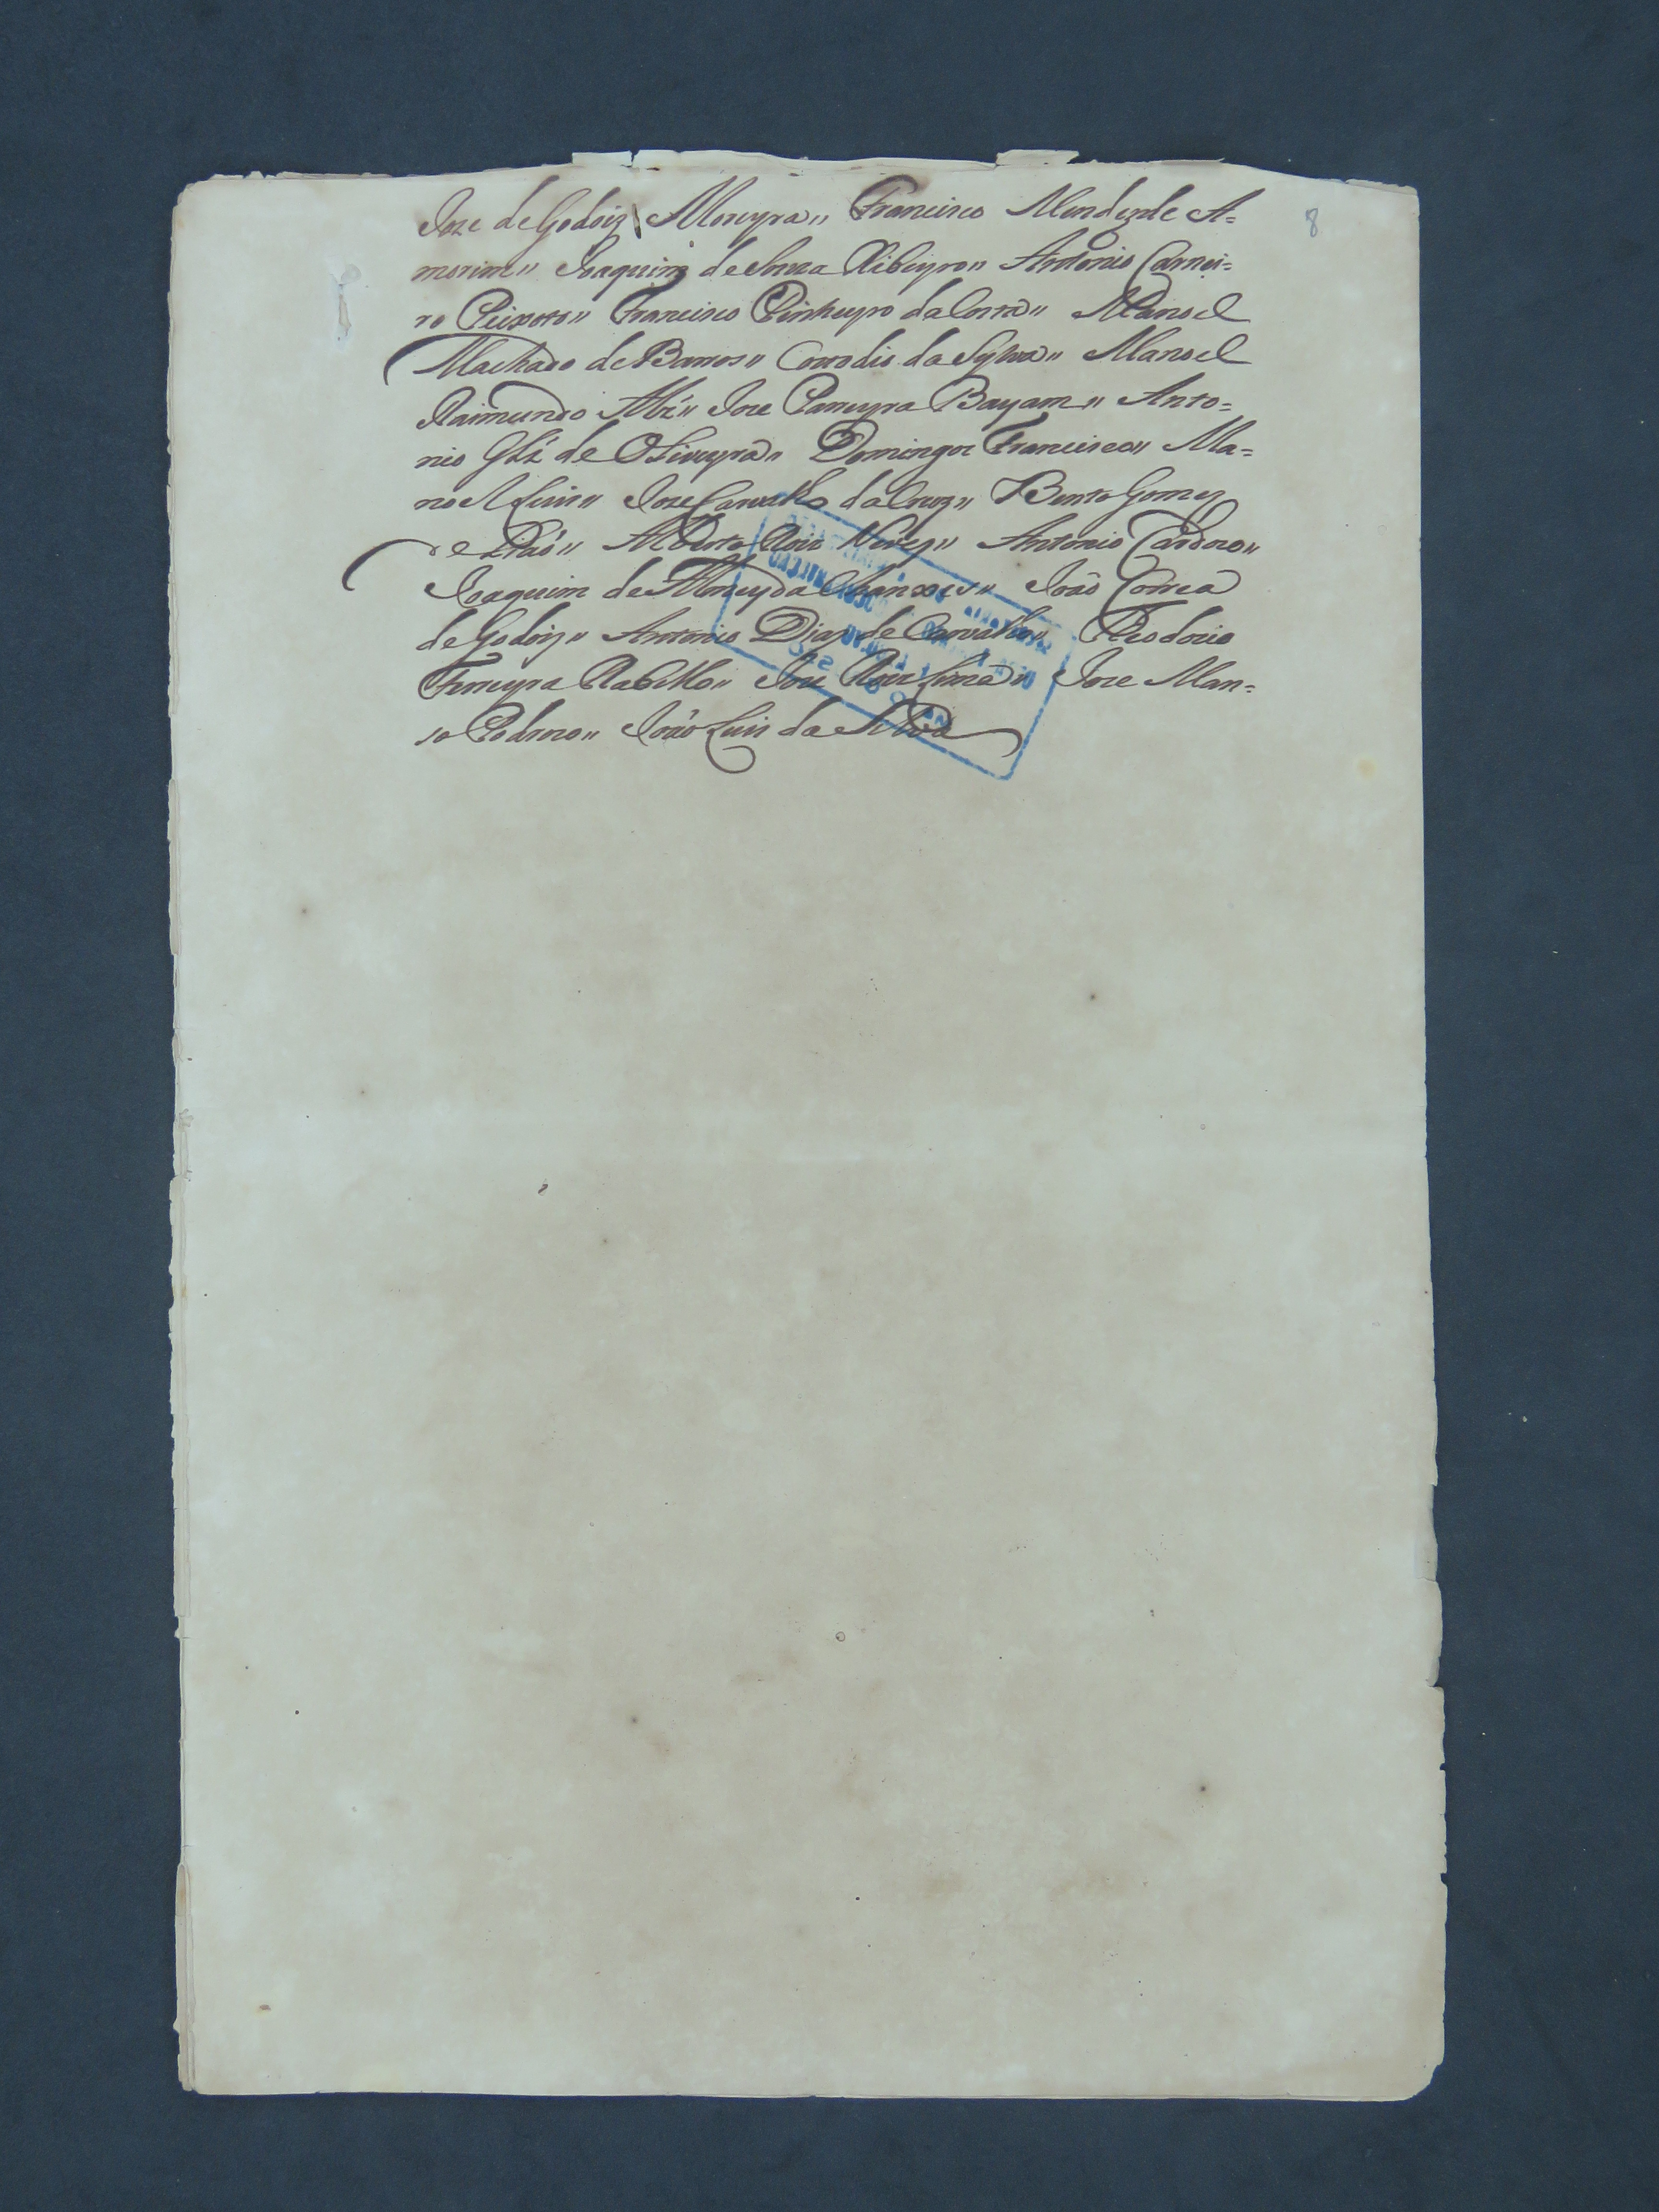 Joze de Godoiz Moreyra„ Francisco Mendez de A=
morim„ Joaquim de Souza Ribeyro„ Antonio Carnei=
ro Peixoto„ Francisco Pinheyro da Costa„ Manoel
Machado de Barros„ da Sylva„ Manoel
Raimundo Joze Parreyra Bayam„ Anto=
nio Glz de Oliveyra„ Domingos Francisco„ Ma=
noel Luis„ Joze Carvalho da Cruz„ Bento Gomez
Alberto Roiz Nevez„ Antonio Cardozo„
Joaquim de Almeyda João Correa
de Godoiz„ Antonio Diaz de Carvalho„ Theodozio
Ferreyra Rabello„ Joze Roiz Lima„ Joze Man=
so Pedrozo„ João Luis da Silva
8